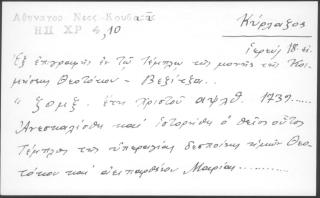 Αθηναγορ Νεος Κουβα
ΗΠ ΧΡ 4, 10
Κύριλλος
ἱερεύς 18 αἰ.
Ἐξ ἐπιγραφῆς ἐν τῷ Τέμπλῳ τῆς μονῆς τῆς Κοι-
μήσεως Θεοτόκου - Βεξίτζα..
" ζομζ. ἔτη Χριστοῦ αψλθ. 1739.....
Ἀνεκαινίσθη καὶ ἱστορήθη ὁ θεῖος οὗτος
Τέμπλος τῆς ὑπεραγίας δεσποίνης ἡμῶν Θεο-
τόκου καὶ ἀειπαρθένου Μαρίας............